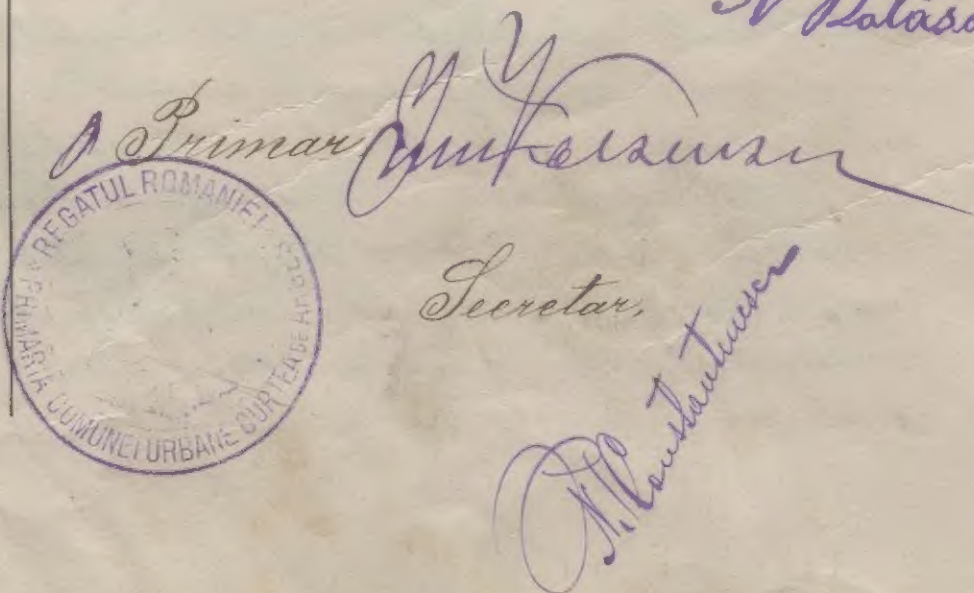 Primar,
REGATUL ROMANIEI
PRIMĂRIA COMUNEI URBANE CURTEA DE
Secretar,
N. Constantinescu